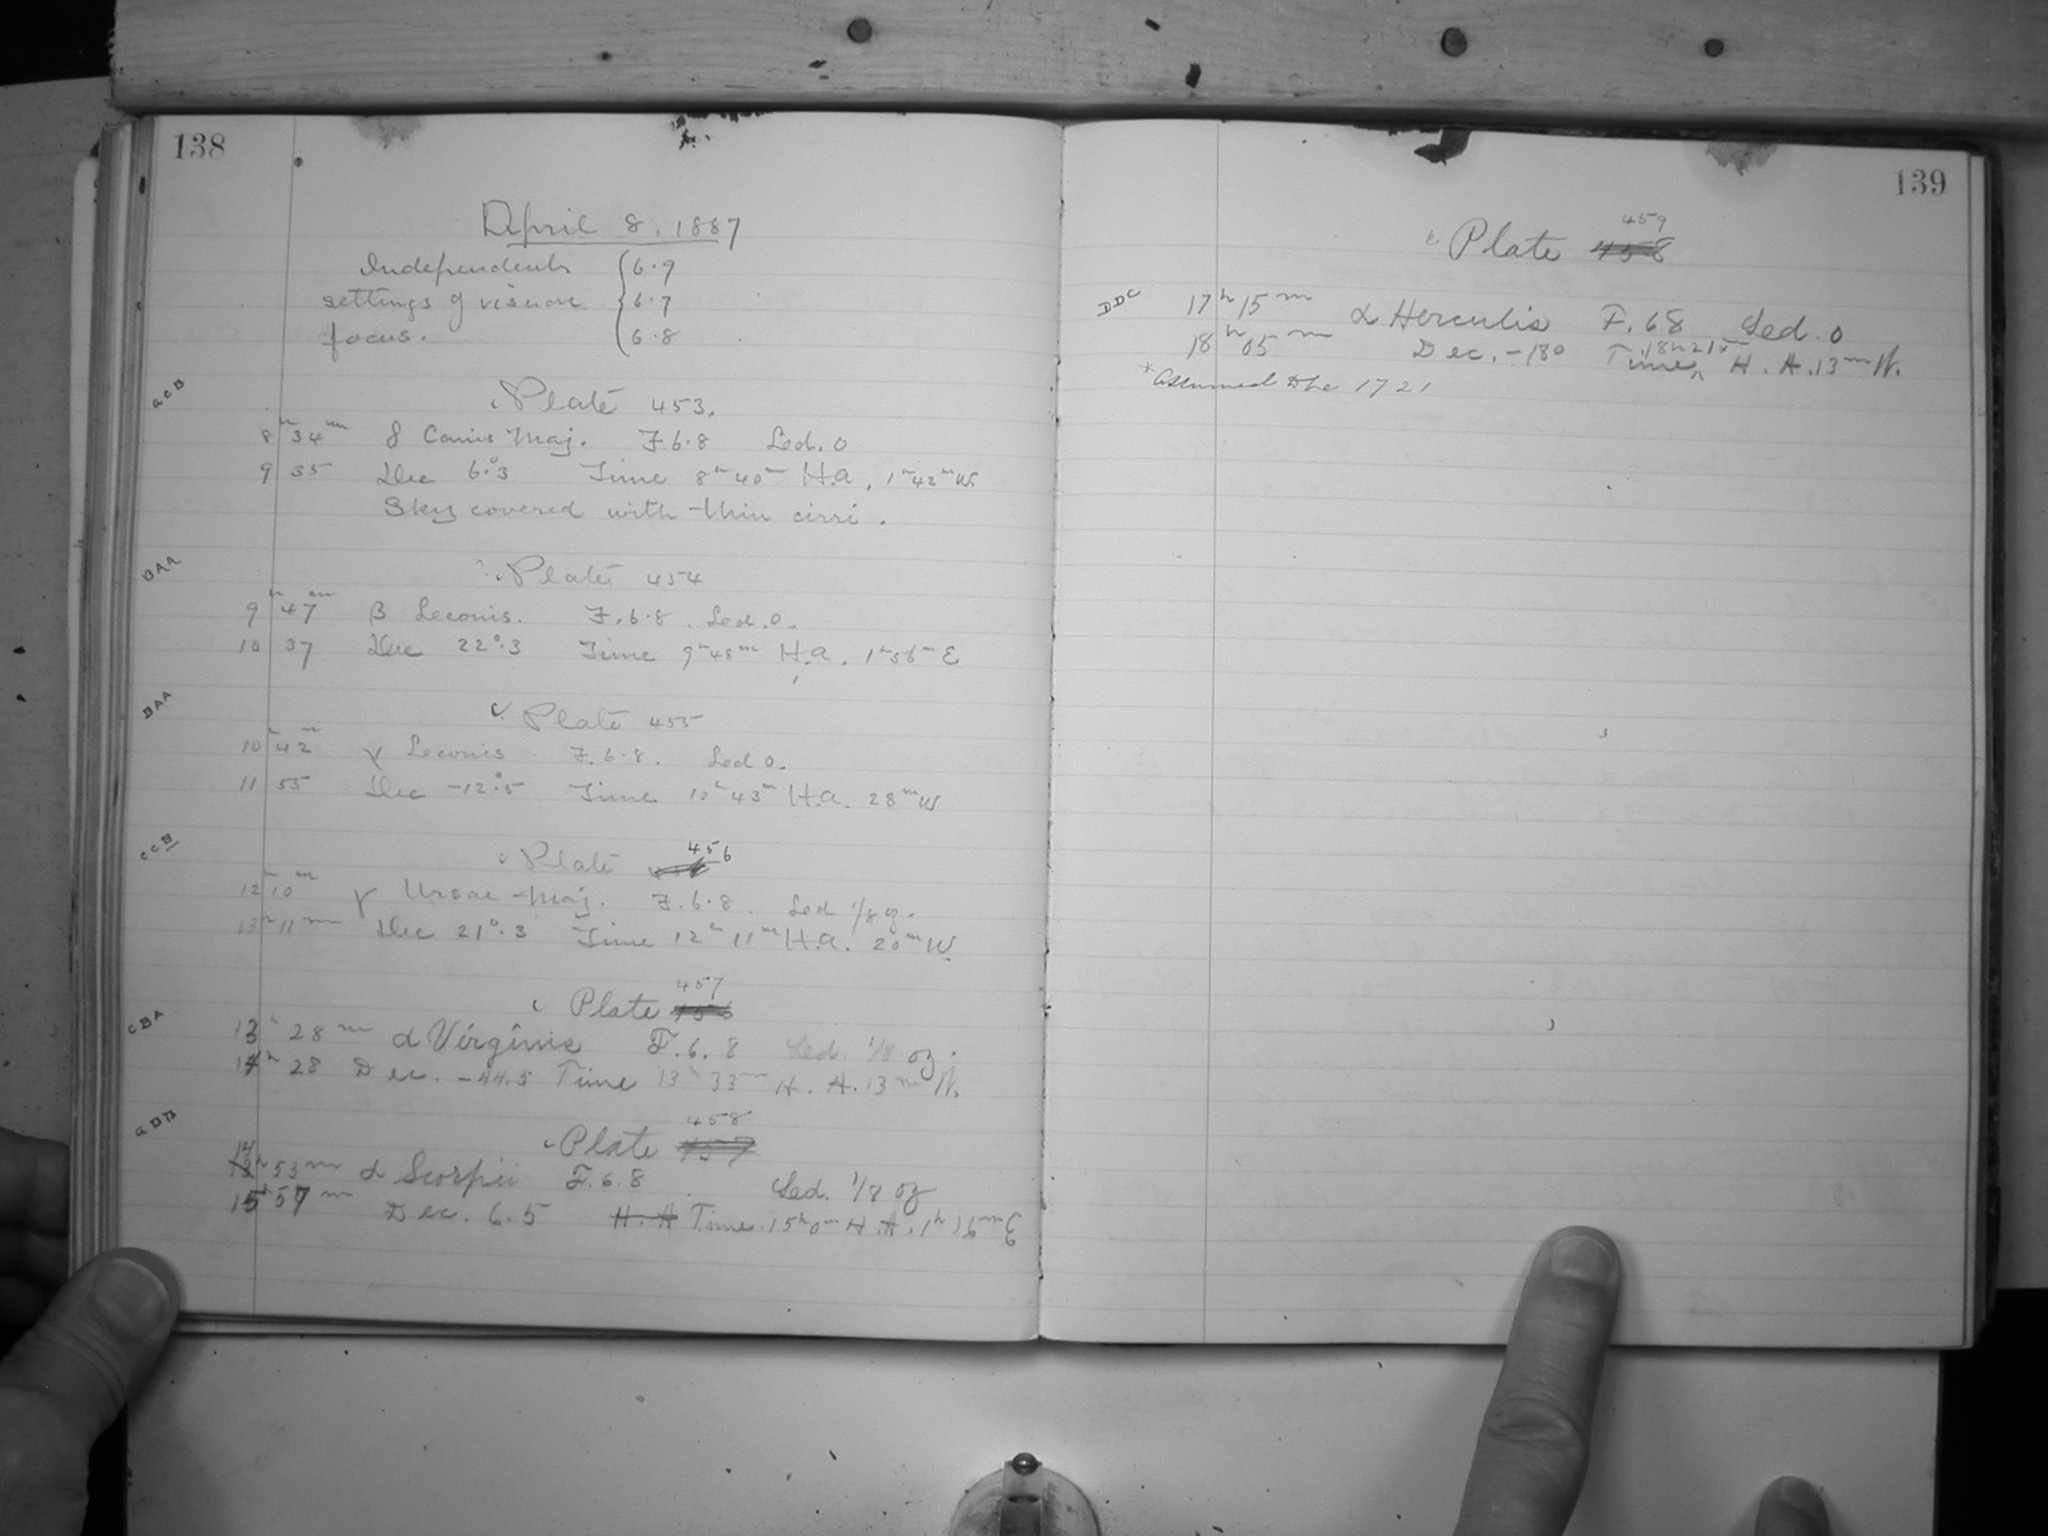 138
April 8, 1887
Independent { 6.9
settings of vision { 6.7
focus. { 6.8
ACB
Plate 453.
8h 34m δ Canis Maj. F. 6.8 Led. 0
9 35 Dec 6°.3 Time 8h 40m H.a. 1h 42m W.
Sky covered with thin cirri.
BAA
Plate 454
9h 47m β Leonis. F. 6.8. Led. 0.
10 37 Dec 22°.3 Time 9h 48m H.a. 1h 56m E
BAA
Plate 455
10h 42m γ Leonis F. 6.8. Led 0.
11 55 Dec -12°.5 Time 10h 43m H.a. 28m W
CCB
Plate 456
12h 10m γ Ursae Maj. F. 6.8. Led 1/8 oz.
13h 11m Dec 21°.3 Time 12h 11m H.a. 20m W.
457
CBA
Plate 456
13h 28m α Virginis F. 6.8 Led. 1/8 oz.
14h 28 Dec. -44.5 Time 13h 33m H. A. 13m W.
458
ADB
Plate 457
14h 53m α Scorpii F. 6.8 Led. 1/8 oz
15h 57m Dec. 6.5 H. A Time 15h 0m H. A. 1h 16m E
139
459
Plate 458
DDC
17h 15m α Herculis F. 68 Led. 0
18h 05m Dec. -180 Time 18h 21x H. A. 13m W.
* Assumed to be 17 21